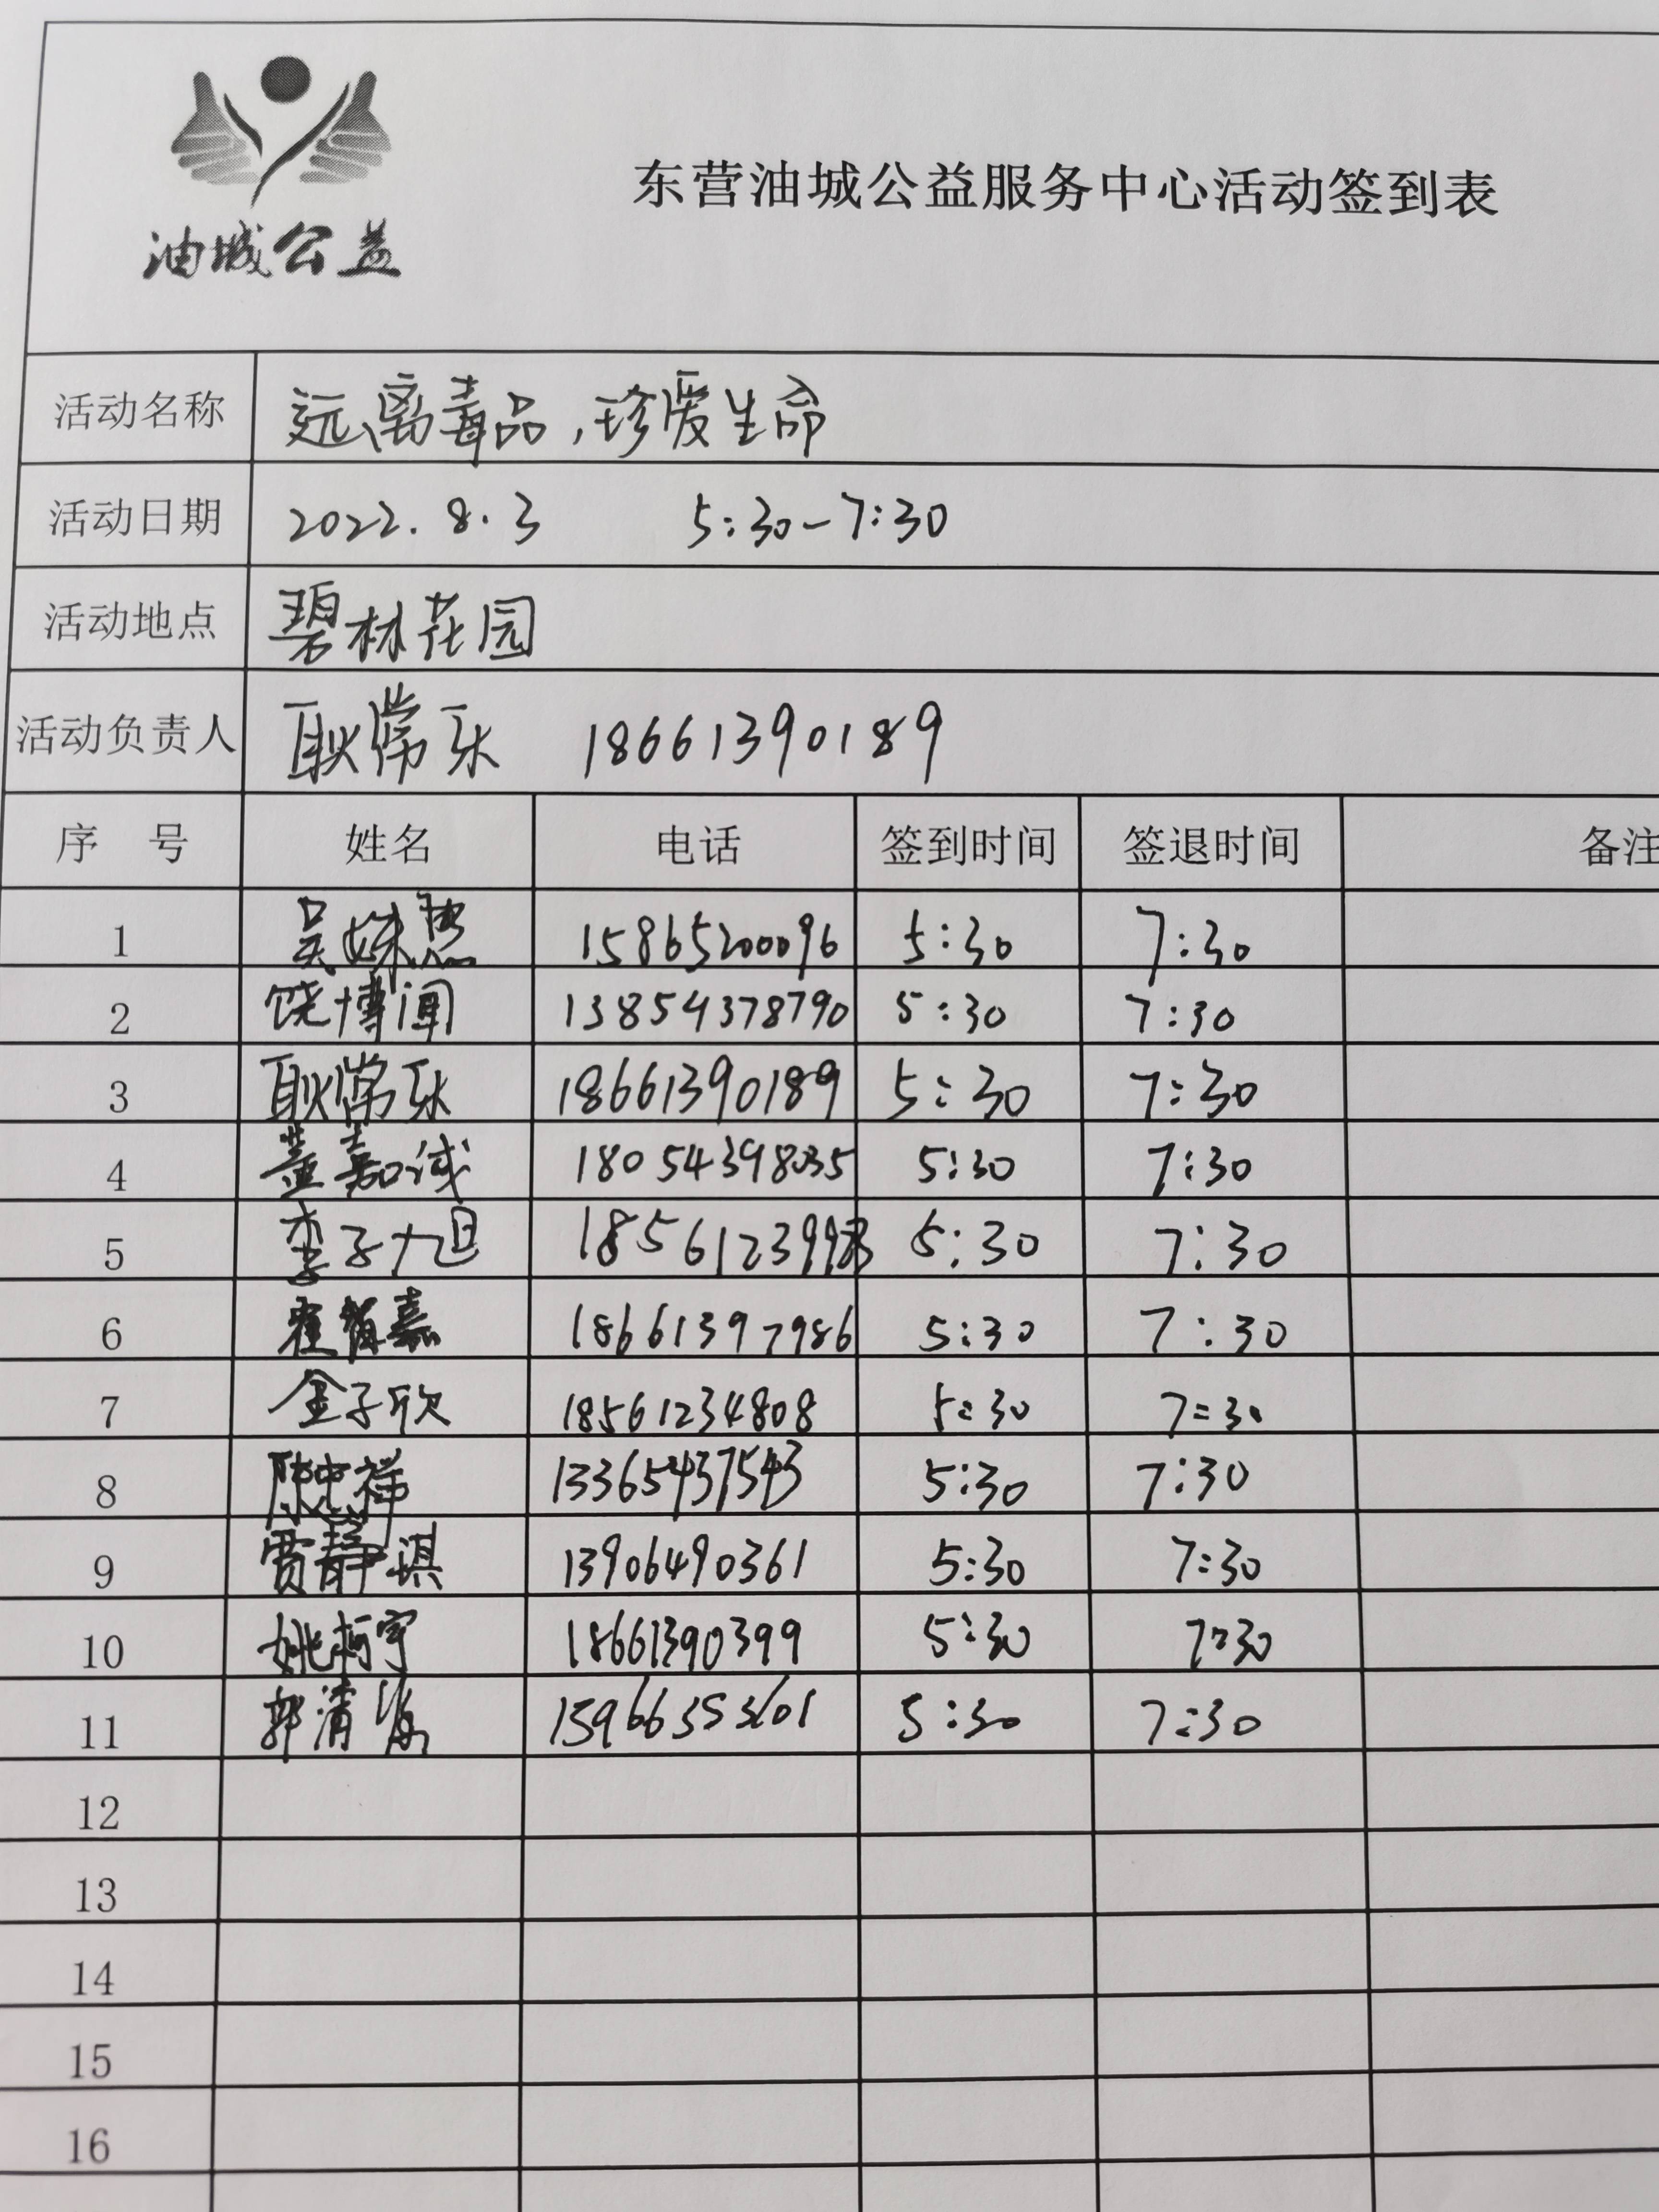 油城公益
东营油城公益服务中心活动签到表
活动名称 远离毒品,珍爱生命
活动日期 2022.8.3 5:30-7:30
活动地点 碧林花园
活动负责人 耿常乐 18661390189
序 号 姓名 电话 签到时间 签退时间 备注
1 吴姝 15865200096 5:30 7:30
2 饶博闻 13854378790 5:30 7:30
3 耿常乐 18661390189 5:30 7:30
4 董嘉诚 18054398035 5:30 7:30
5 李子旭 5:30 7:30
6 嘉 18661397986 5:30 7:30
7 金子欣 18561234808 5:30 7:30
8 祥 13365437543 5:30 7:30
9 贾静琪 13906490361 5:30 7:30
10 姚柯宇 18661390399 5:30 7:30
11 郭清 5:30 7:30
12
13
14
15
16